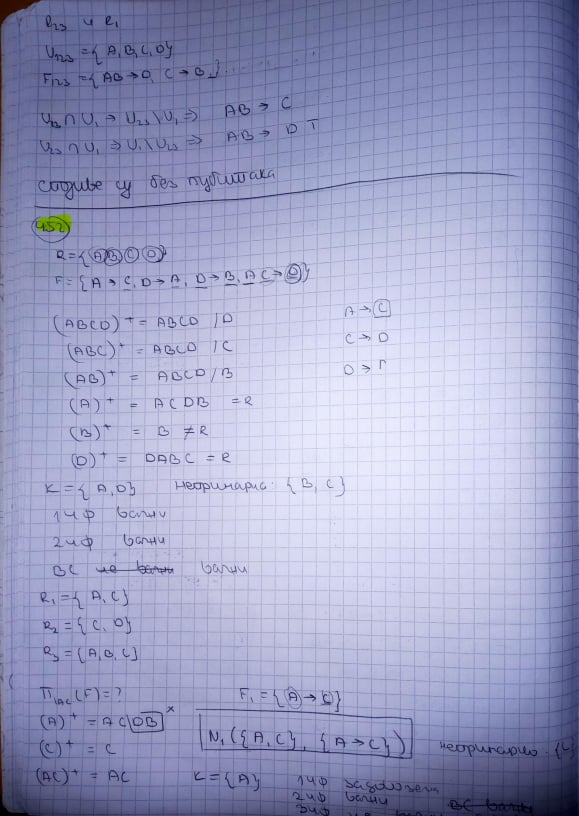 R₂₃ и R₁
U₁₂₃ = {A, B, C, D}
F₁₂₃ = {AB → D, C → B}
U₂₃ ∩ U₁ → U₂₃ \ U₁ ⇒ AB → C
U₂₃ ∩ U₁ ⇒ U₁ \ U₂₃ ⇒ AB → D T
су без губитака
452)
R = {A B C D}
F = {A → C, D → A, D → B, AC → D}
(ABCD)⁺ = ABCD / D
A → C
(ABC)⁺ = ABCD / C
C → D
(AB)⁺ = ABCD / B
D →
(A)⁺ = ACDB = R
(B)⁺ = B ≠ R
(D)⁺ = DABC = R
K = {A, D} непримарна: {B, C}
1НФ важи
2НФ важи
BC не важи важи
R₁ = {A, C}
R₂ = {C, D}
R₃ = {A, B, C}
Π|AC (F) = ? F₁ = {A → C}
(A)⁺ = AC DB x
N₁ ({A, C}, {A → C})
(C)⁺ = C
непримарно: {C
(AC)⁺ = AC K = {A} 1НФ задовољена
2НФ важи
3НФ